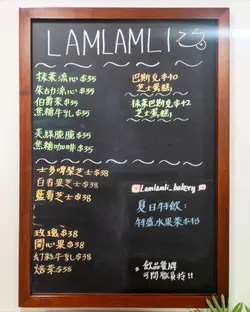 LAMLAMLI
抹茶流心 $35
朱古力流心 $35
伯爵茶 $35
焦糖牛乳 $35
美祿脆脆 $35
焦糖咖啡 $35
士多啤梨芝士 $38
白香果芝士 $38
藍莓芝士 $38
玫瑰 $38
開心果 $38
幻彩牛乳 $38
焙茶 $38
巴斯克 $40
芝士蛋糕
抹茶巴斯克 $42
芝士蛋糕
Lamlamli_bakery
夏日特飲:
特盛水果茶 $48
飲品餐牌
可問職員拎!!